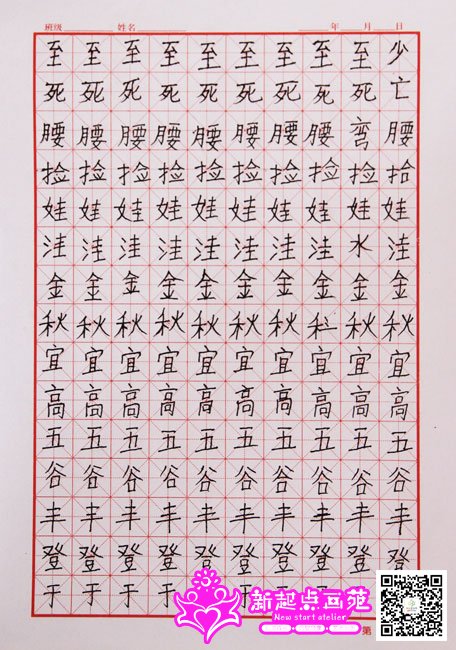 班级 姓名 年 月 日
至 至 至 至 至 至 至 至 至 少
死 死 死 死 死 死 死 死 死 亡
腰 腰 腰 腰 腰 腰 腰 腰 弯 腰
捡 捡 捡 捡 捡 捡 捡 捡 捡 拾
娃 娃 娃 娃 娃 娃 娃 娃 娃 娃
洼 洼 洼 洼 洼 洼 洼 洼 水 洼
金 金 金 金 金 金 金 金 金 金
秋 秋 秋 秋 秋 秋 秋 秋 秋
宜 宜 宜 宜 宜 宜 宜 宜 宜 宜
高 高 高 高 高 高 高 高 高 高
五 五 五 五 五 五 五 五 五 五
谷 谷 谷 谷 谷 谷 谷 谷 谷 谷
丰 丰 丰 丰 丰 丰 丰 丰 丰 丰
登 登 登 登 登 登 登 登 登 登
于 于 于 于 于 于 于 于
新起点画苑
New start atelier
第